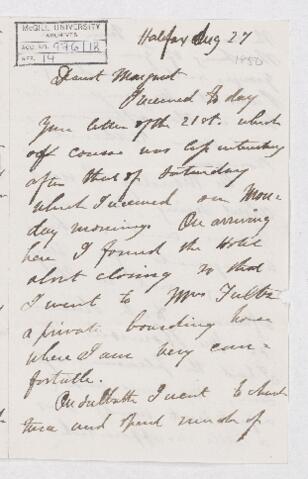 McGILL UNIVERSITY
ARCHIVES
ACC. NO. 976/18
REF. 14
Halifax Aug 27
1880
Dearest Margaret
I received to day
your letter of the 21st. which
off course was left
after that of Saturday
which I received on Mon-
day morning. On arriving
here I found the Hotel
about closing so that
I went to Mrs
a private boarding house
where I am very com-
fortable.
On Sabbath I went to
and spend much of